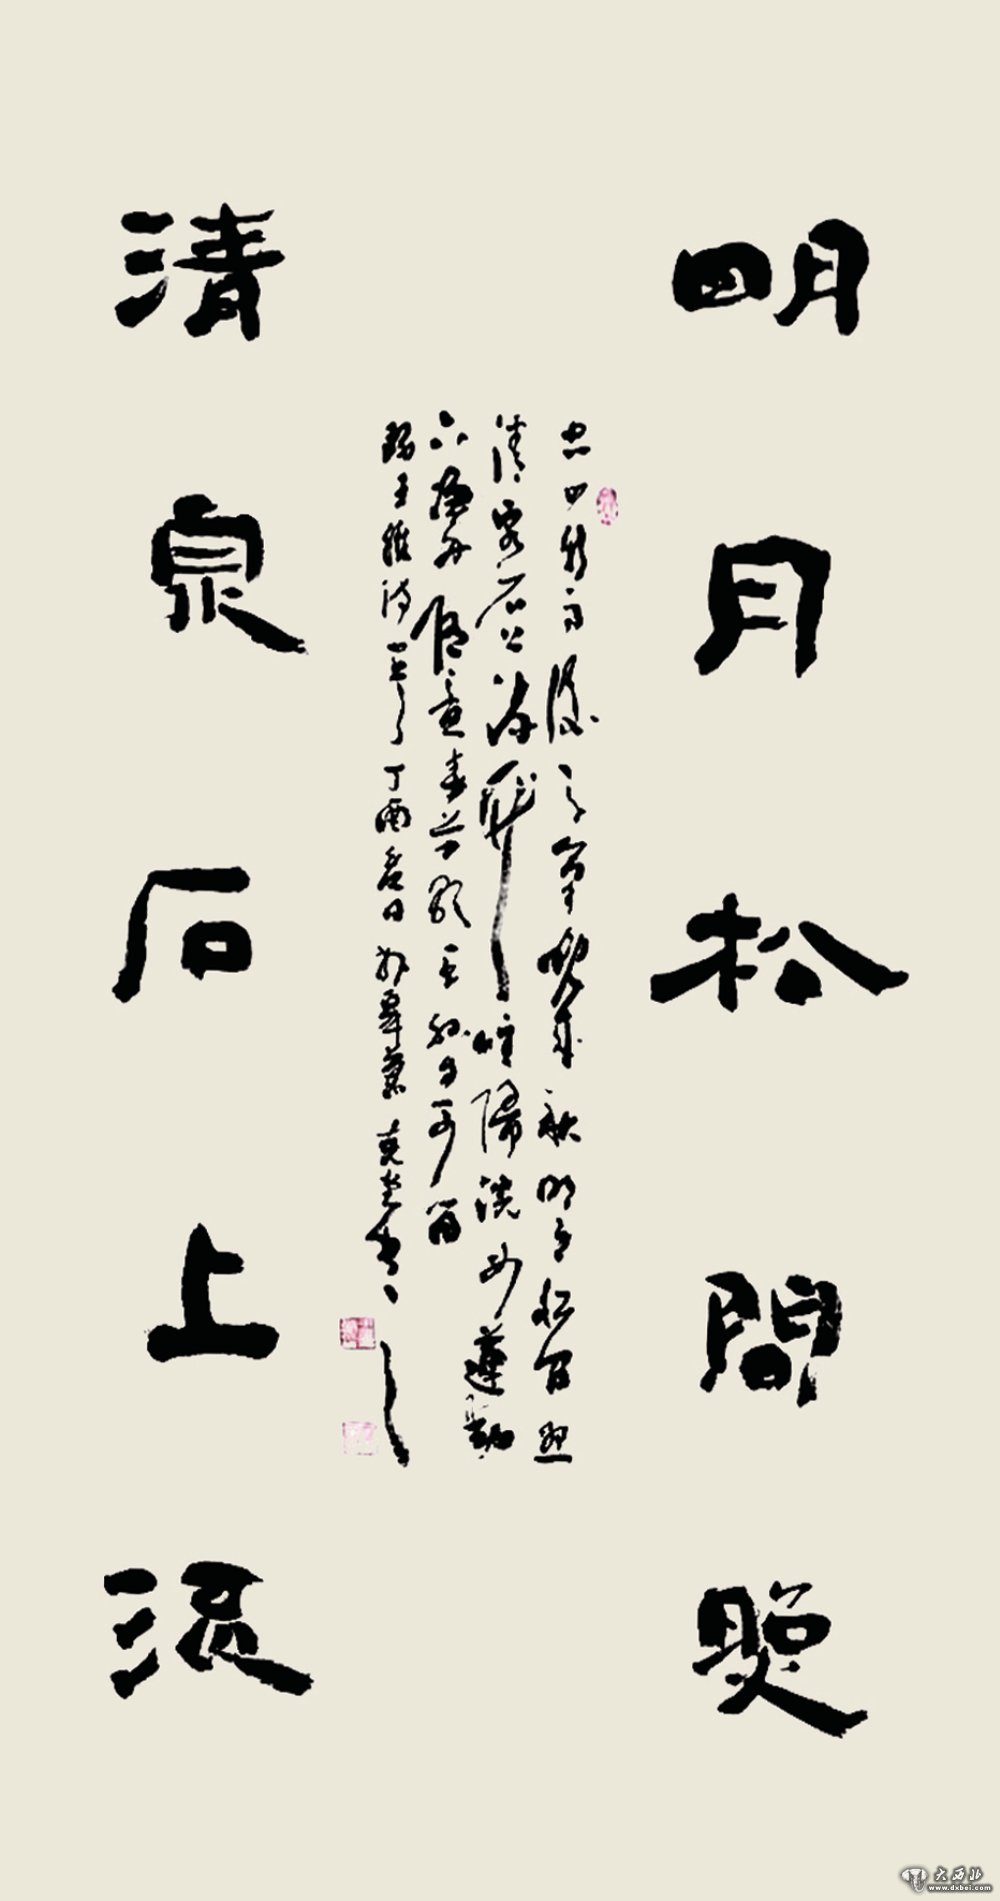 明月松間照
空山新雨後天氣晚來秋明月松間照
清泉石上流竹喧歸浣女蓮動
下漁舟隨意春芳歇王孫自可留
錄王維詩一首丁酉春日於皋蘭克書
清泉石上流
大西北
www.dxbei.com